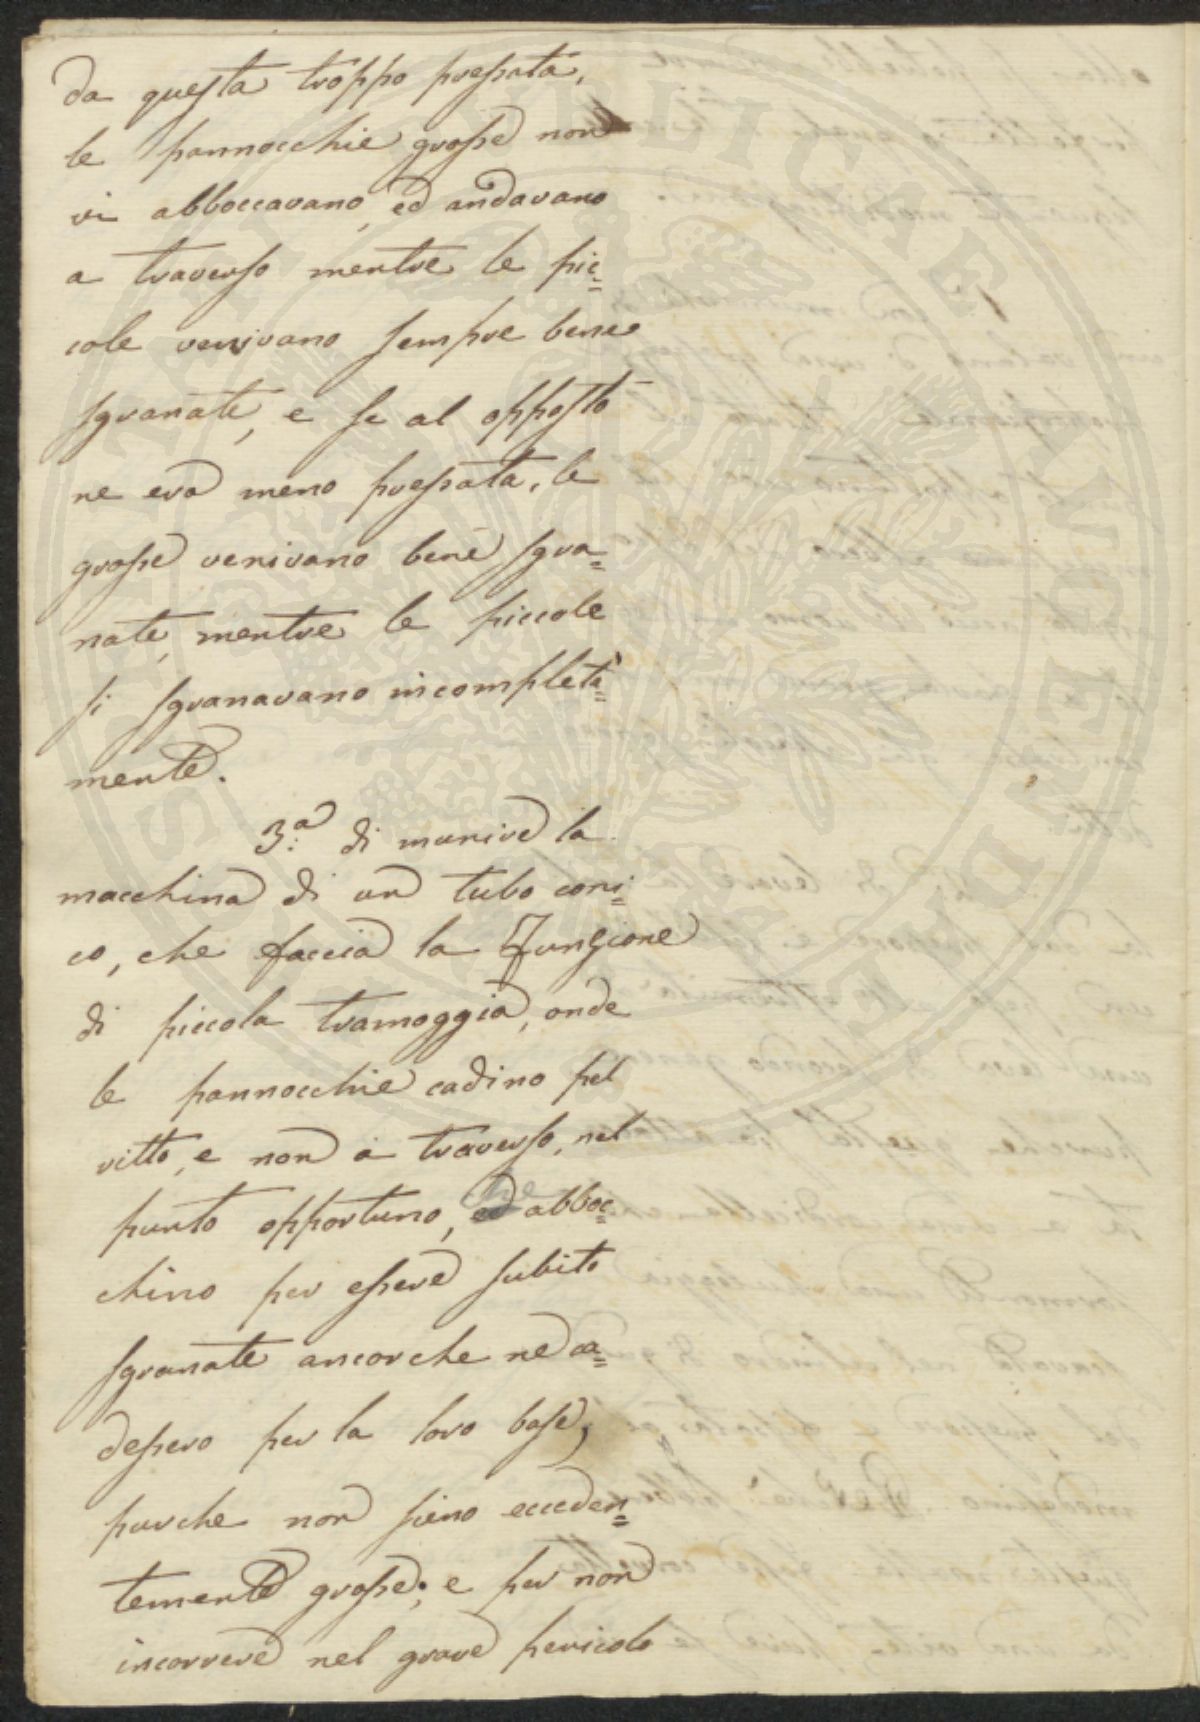 da questa troppo pressata,
le pannocchie grosse non
vi abboccavano, ed andavano
a traverso mentre le pic=
cole venivano sempre bene
sgranate, e se al opposto
ne era meno pressata, le
grosse venivano bene sgra=
nate, mentre le piccole
si sgranavano incompleta=
mente.
3.a di munire la
macchina di un tubo coni=
co, che faccia la Funzione
di piccola tramoggia, onde
le pannocchie cadino pel
ritto, e non a traverso, nel
punto opportuno, ed abboc=
chino per essere subito
sgranate ancorche ne ca=
dessero per la loro base,
purche non sieno ecceden=
temente grosse; e per non
incorrere nel grave pericolo